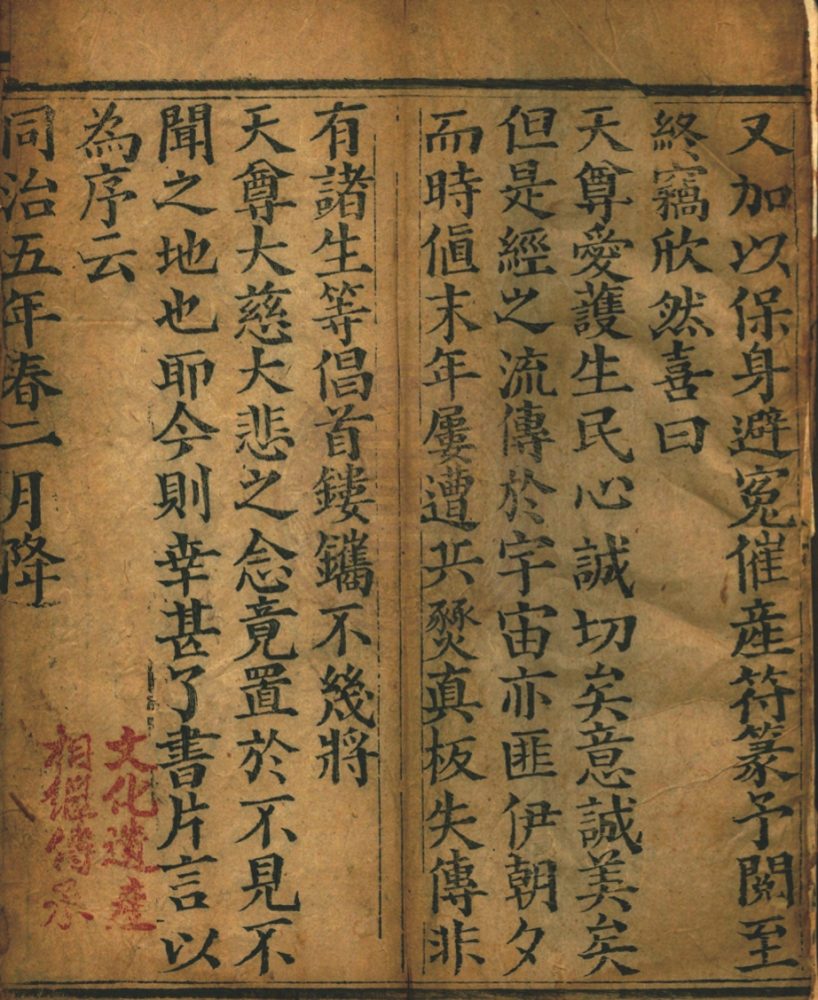 又加以保身避冤催産符篆予閱至
終竊欣然喜曰
天尊愛護生民心誠切矣意誠美矣
但是經之流傳於宇宙亦匪伊朝夕
而時值末年屢遭兵燹真板失傳非
有諸生等倡首鏤鐫不幾將
天尊大慈大悲之念竟置於不見不
聞之地也耶今則幸甚了書片言以
為序云
同治五年春二月降
文化遺産
相繼傳承